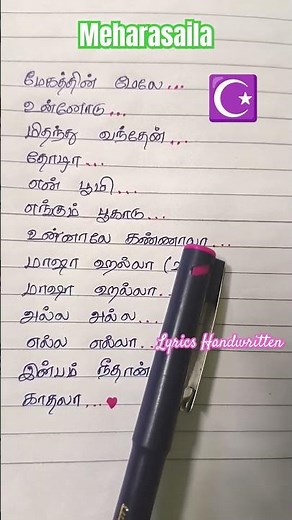 Meharasaila
மேகத்தின் மேலே...
உன்னோடு...
மிதந்து வந்தேன்...
தோடா...
என் பூமி...
எங்கும் பூகாடு...
உன்னாலே கண்ணாலா...
மாஷா அல்லா (2
மாஷா அல்லா...
அல்ல அல்ல...
எல்ல எல்லா...
Lyrics Handwritten
இன்பம் நீதான்
காதலா...